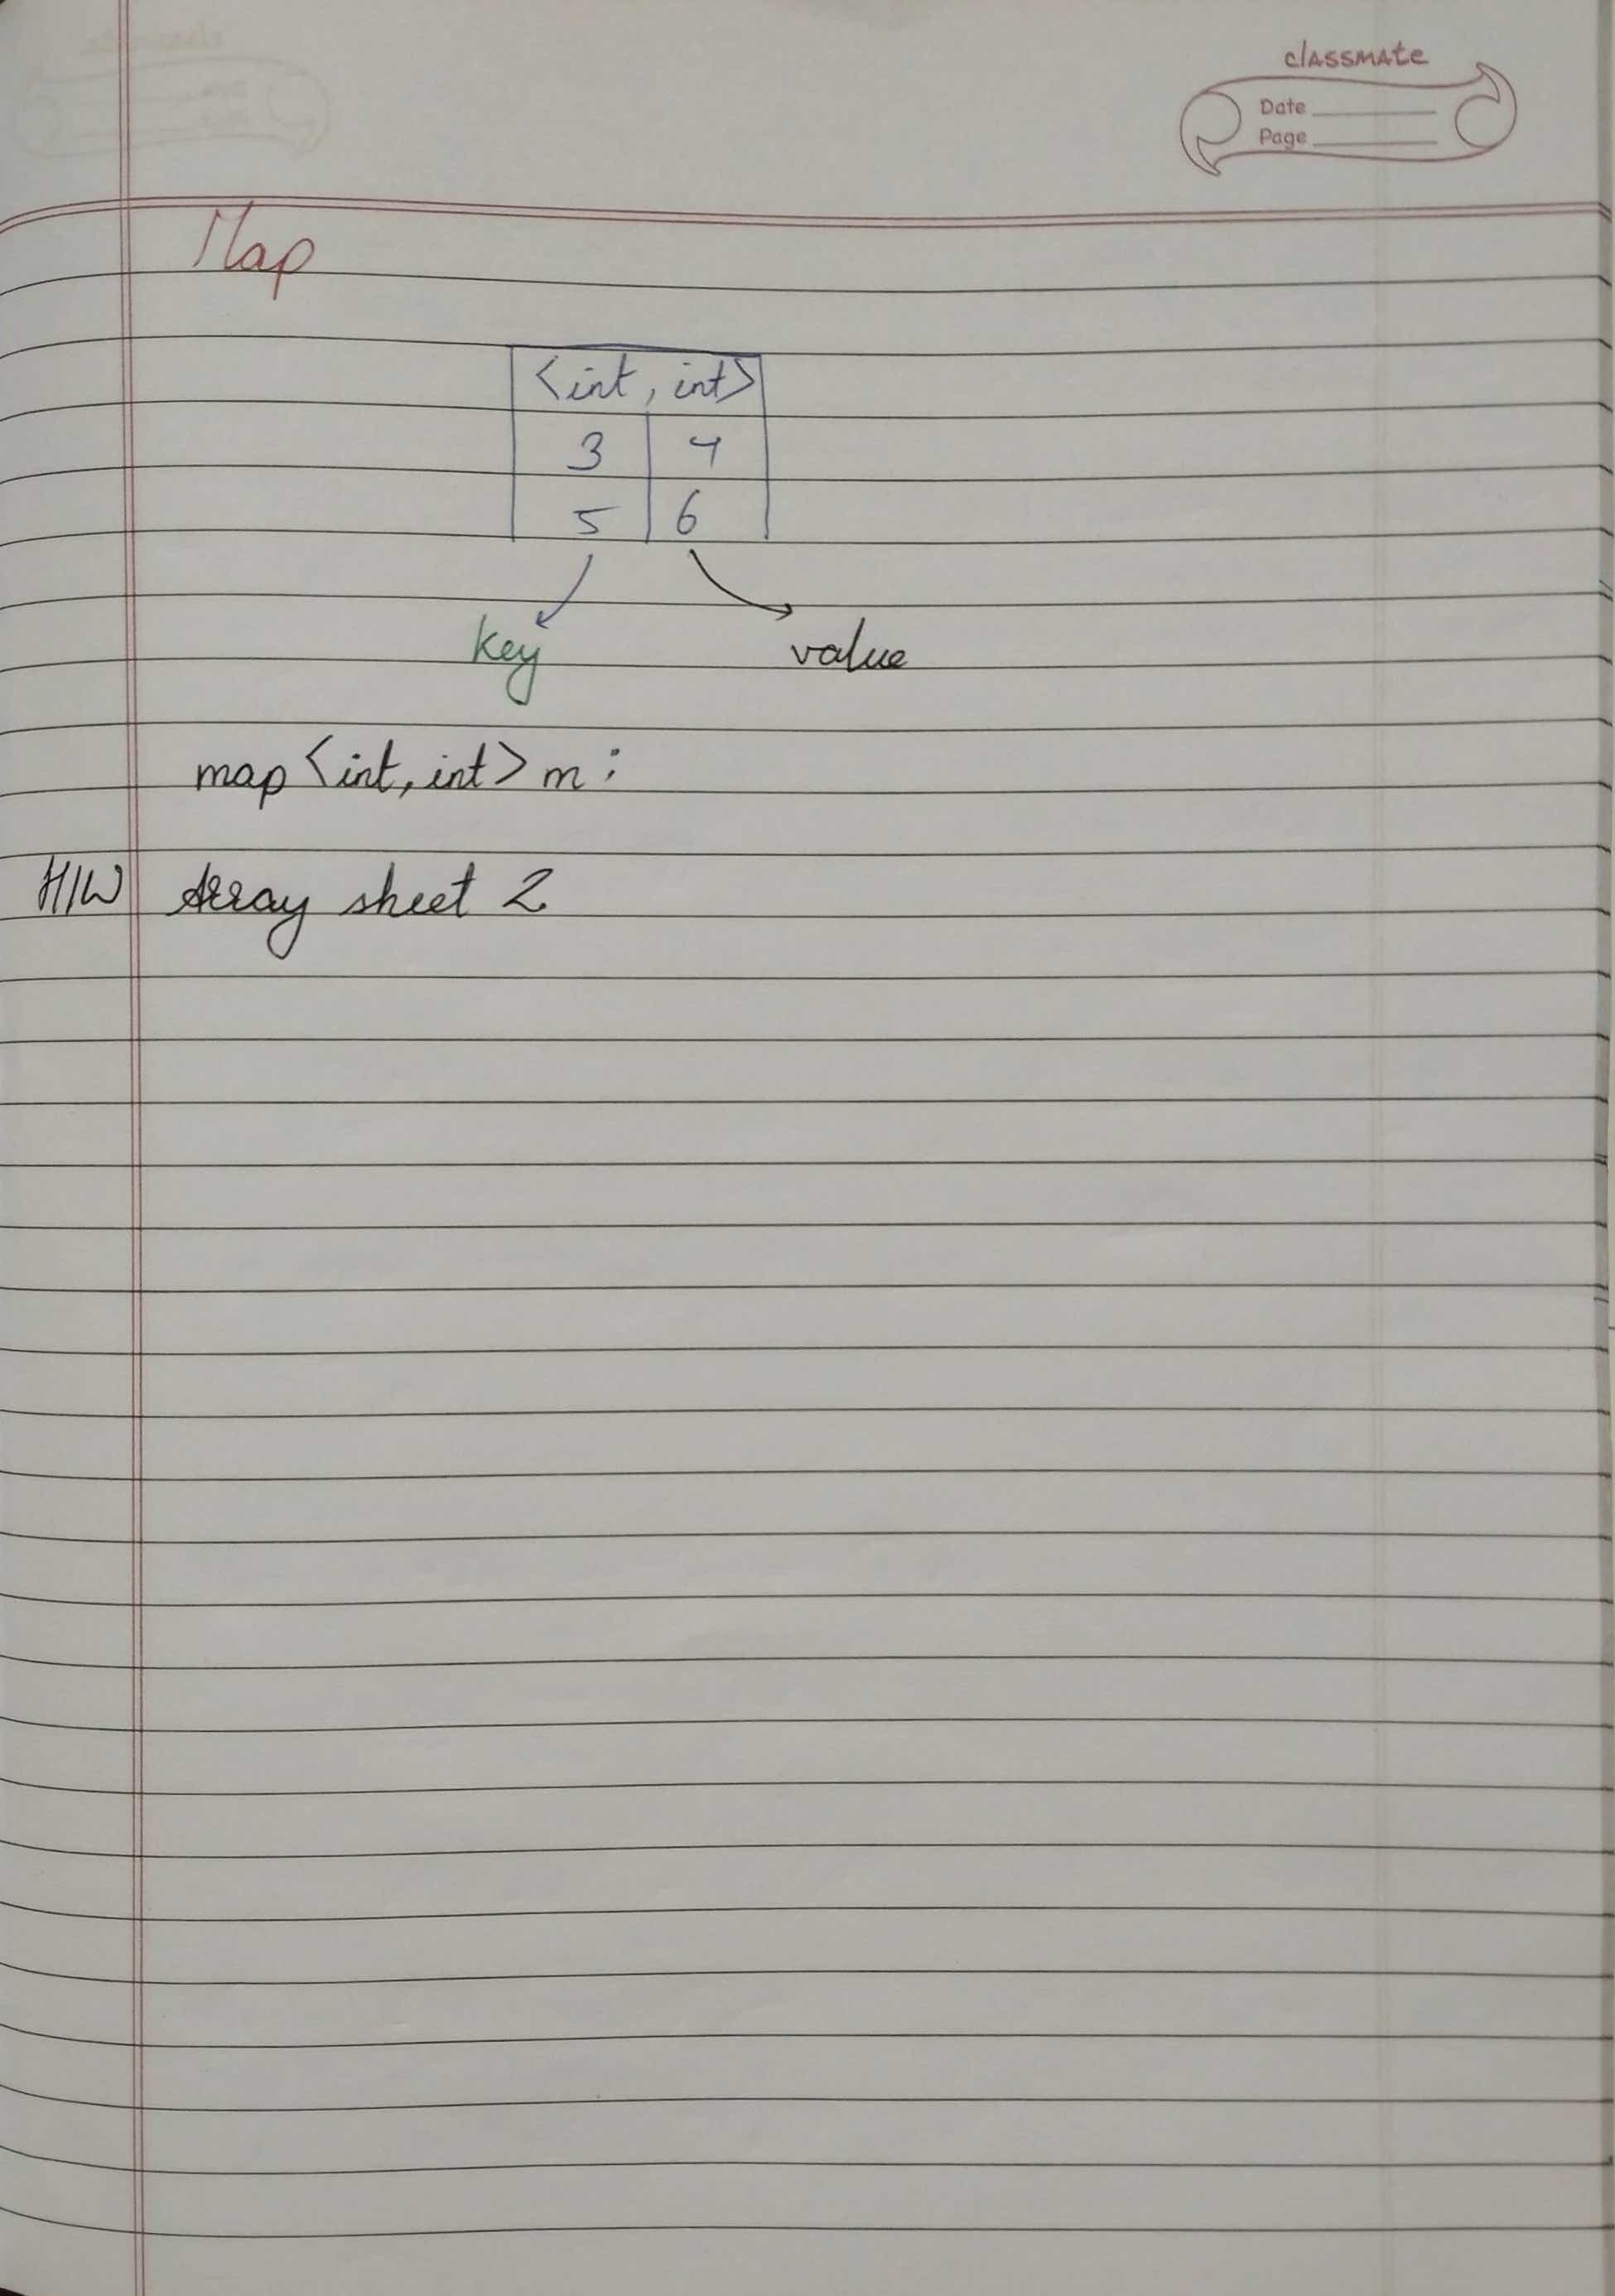 classmate
Date
Page
Map
<int, int>
3 4
5 6
key value
map <int, int> m ;
H/W Array sheet 2